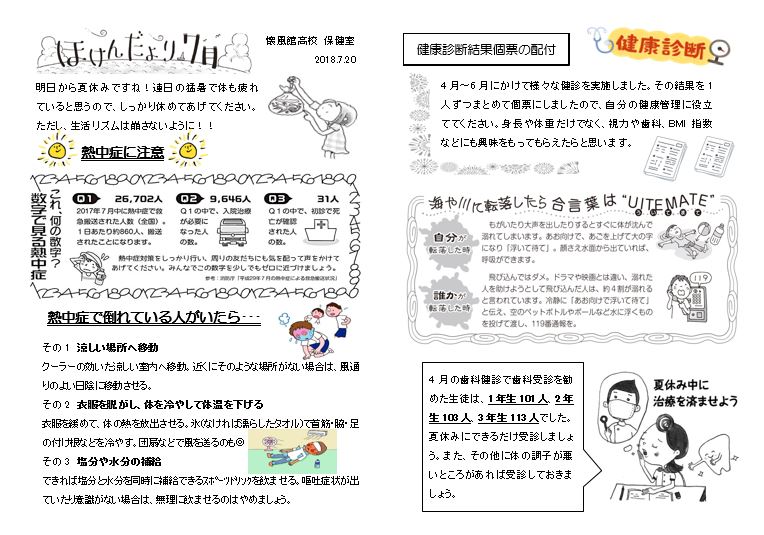 ほけんだより7月
懐風館高校 保健室
2018.7.20
明日から夏休みですね！連日の猛暑で体も疲れ
ていると思うので、しっかり休めてあげてください。
ただし、生活リズムは崩さないように！！
熱中症に注意
これ、何の数字？
数字で見る熱中症
Q1 26,702人
2017年7月中に熱中症で救
急搬送された人数（全国）。
1日あたり約860人、搬送
されたことになります。
Q2 9,646人
Q1の中で、入院治療
が必要に
なった人
の数。
Q3 31人
Q1の中で、初診で死
亡が確認
された人
の数。
熱中症対策をしっかり行い、周りの友だちにも気を配って声をかけて
あげてください。みんなでこの数字を少しでもゼロに近づけましょう。
参考：消防庁「平成29年7月の熱中症による救急搬送状況」
熱中症で倒れている人がいたら・・・
その1 涼しい場所へ移動
クーラーの効いた涼しい室内へ移動。近くにそのような場所がない場合は、風通
りのよい日陰に移動させる。
その2 衣服を脱がし、体を冷やして体温を下げる
衣服を緩めて、体の熱を放出させる。氷(なければ濡らしたタオル)で首筋・脇・足
の付け根などを冷やす。団扇などで風を送るのも◎
その3 塩分や水分の補給
できれば塩分と水分を同時に補給できるスポーツドリンクを飲ませる。嘔吐症状が出
ていたり意識がない場合は、無理に飲ませるのはやめましょう。
健康診断結果個票の配付
健康診断
4月～6月にかけて様々な健診を実施しました。その結果を1
人ずつまとめて個票にしましたので、自分の健康管理に役立
ててください。身長や体重だけでなく、視力や歯科、BMI 指数
などにも興味をもってもらえたらと思います。
海や川に転落したら 合言葉は“UITEMATE”
ういてまて
自分が
転落した時
もがいたり大声を出したりするとすぐに体が沈んで
溺れてしまいます。あお向けで、あごを上げて大の字
になり「浮いて待て」。顔さえ水面から出ていれば、
呼吸ができます。
誰かが
転落した時
飛び込んではダメ。ドラマや映画とは違い、溺れた
人を助けようとして飛び込んだ人は、約4割が溺れる
と言われています。冷静に「あお向けで浮いて待て」
と伝え、空のペットボトルやボールなど水に浮くもの
を投げて渡し、119番通報を。
119
4月の歯科健診で歯科受診を勧
めた生徒は、1年生101人、2年
生103人、3年生113人でした。
夏休みにできるだけ受診しましょ
う。また、その他に体の調子が悪
いところがあれば受診しておきま
しょう。
夏休み中に
治療を済ませよう